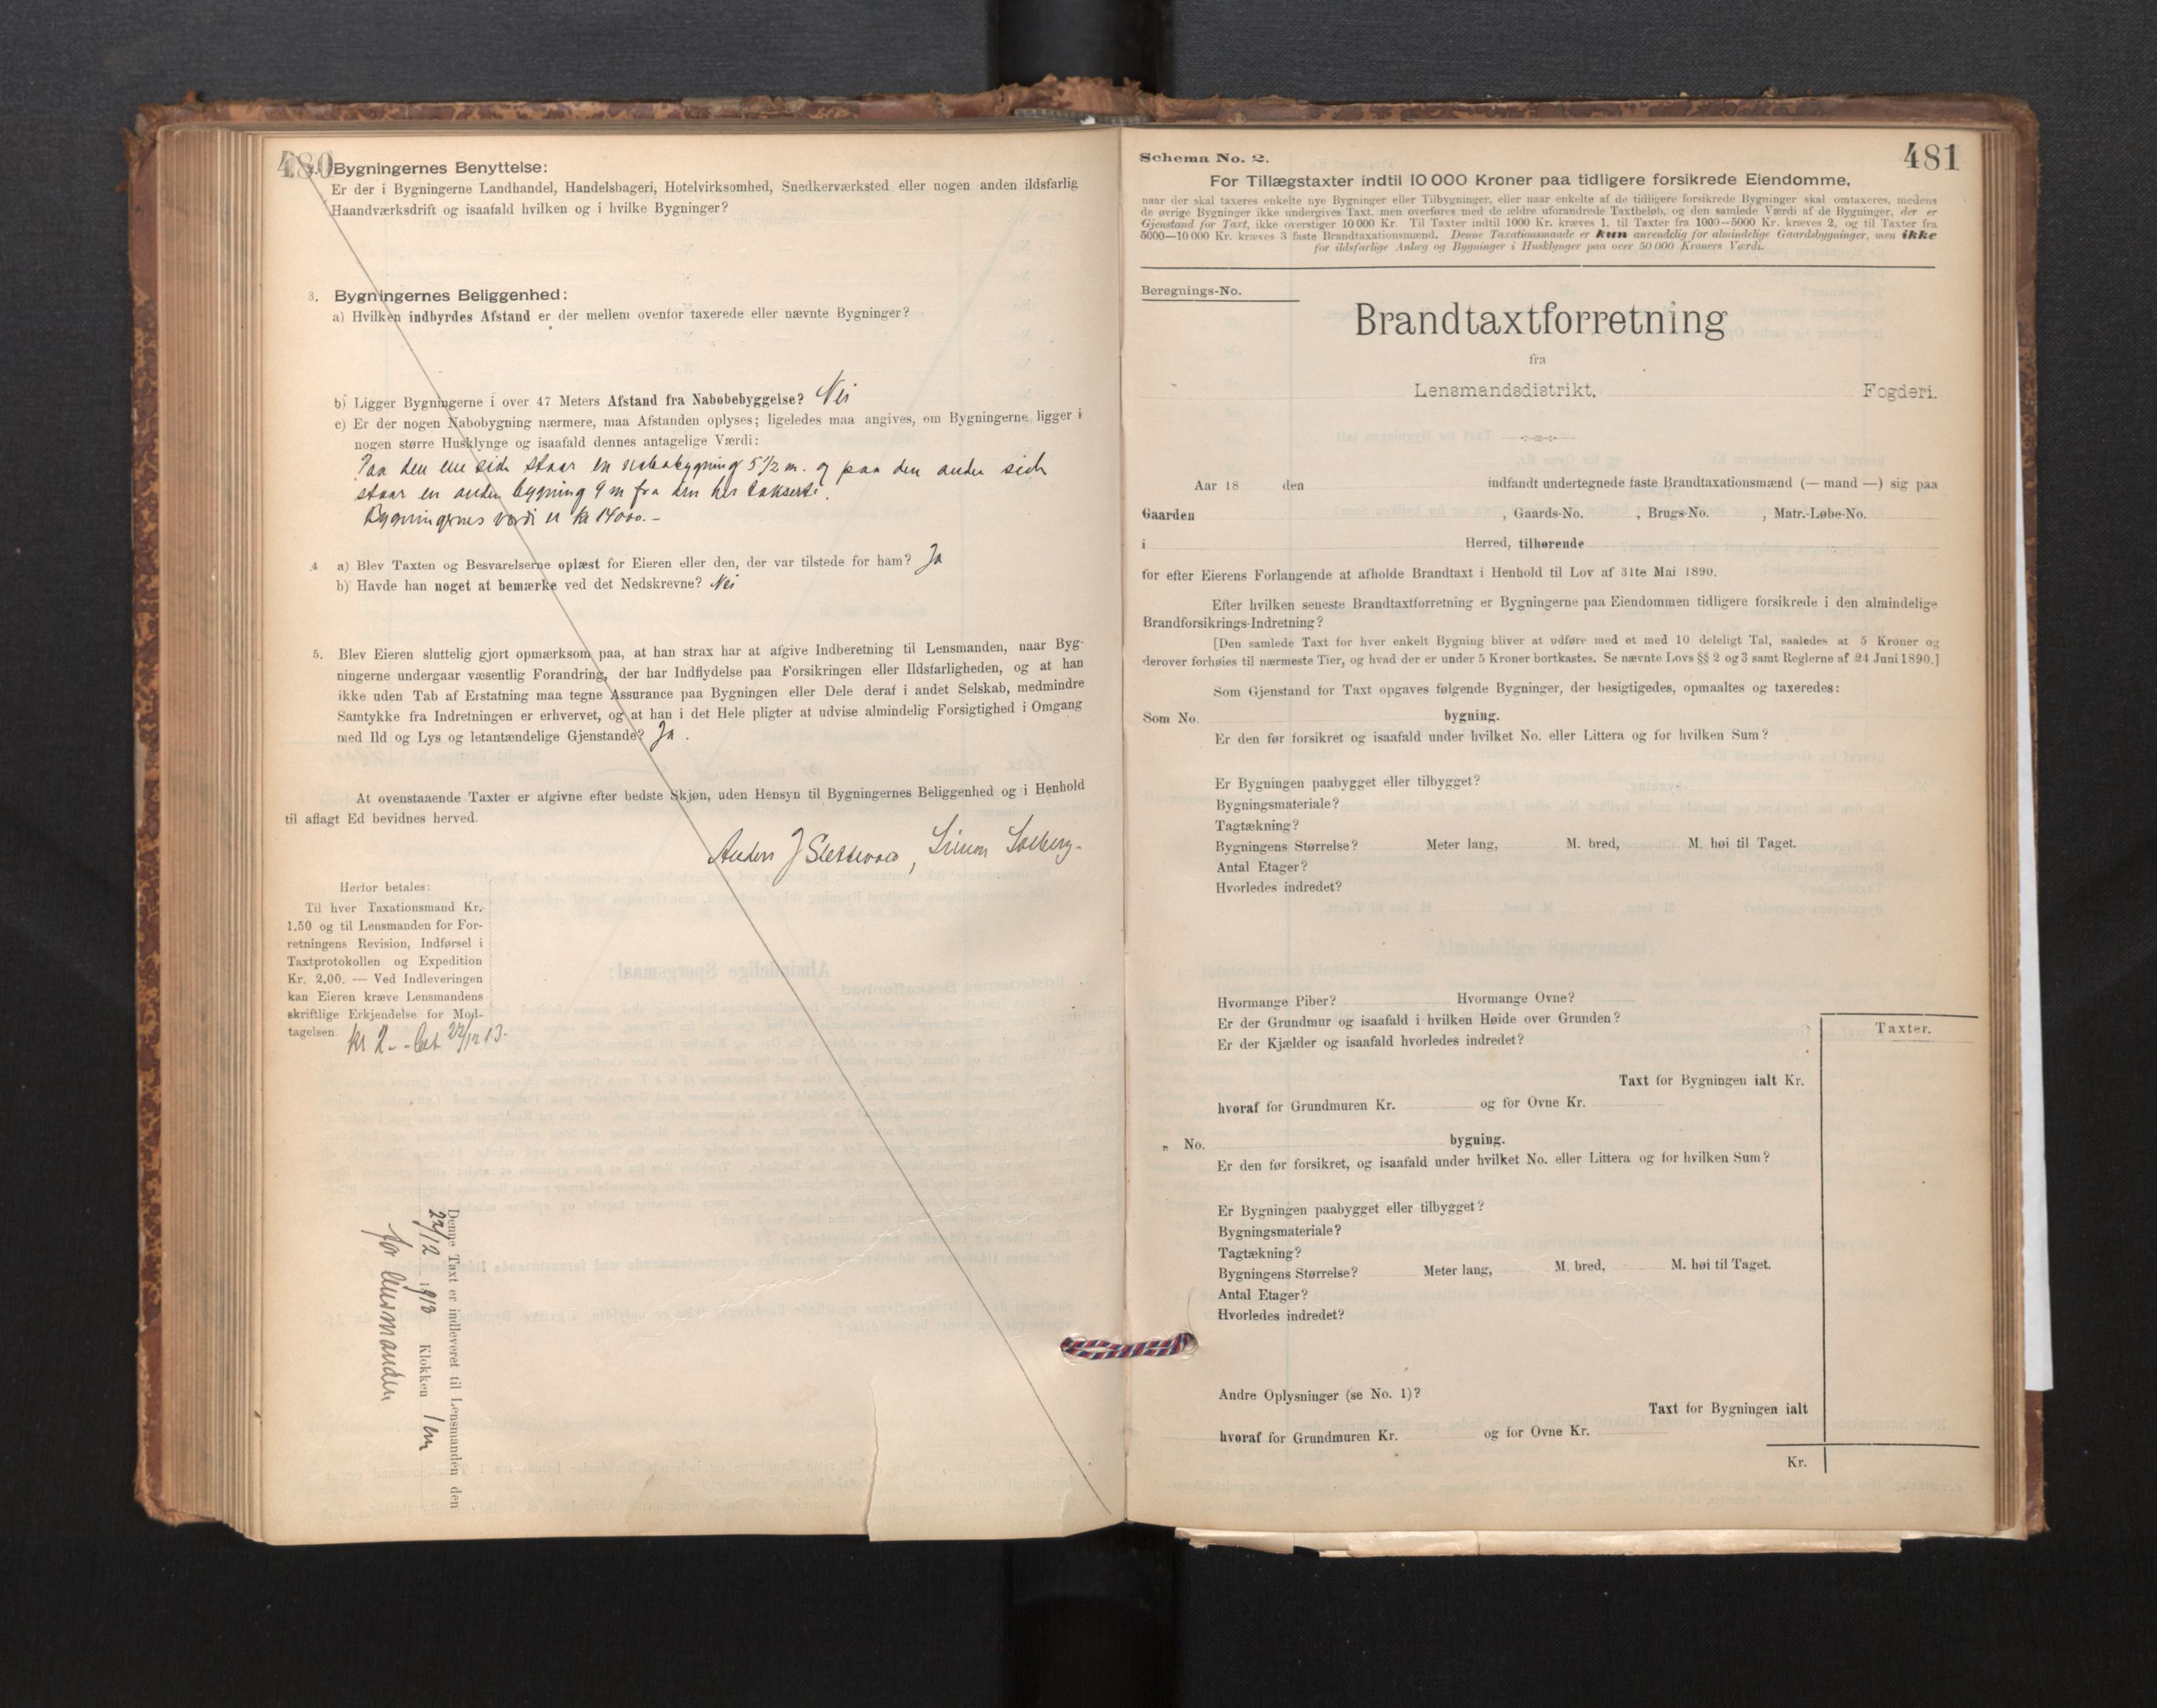 480
2. Bygningernes Benyttelse:
Er der i Bygningerne Landhandel, Handelsbageri, Hotelvirksomhed, Snedkerværksted eller nogen anden ildsfarlig
Haandværksdrift og isaafald hvilken og i hvilke Bygninger?
3. Bygningernes Beliggenhed:
a) Hvilken indbyrdes Afstand er der mellem ovenfor taxerede eller nævnte Bygninger?
b) Ligger Bygningerne i over 47 Meters Afstand fra Nabobebyggelse? Nei
c) Er der nogen Nabobygning nærmere, maa Afstanden oplyses; ligeledes maa angives, om Bygningerne ligger i
nogen større Husklynge og isaafald dennes antagelige Værdi:
Paa den ene side staar en nabobygning 5 1/2 m. og paa den anden side
staar en anden bygning 9 m fra den her takserte.
Bygningernes verdi er kr 14000.-
4 a) Blev Taxten og Besvarelserne oplæst for Eieren eller den, der var tilstede for ham? Ja
b) Havde han noget at bemærke ved det Nedskrevne? Nei
5. Blev Eieren sluttelig gjort opmærksom paa, at han strax har at afgive Indberetning til Lensmanden, naar Byg-
ningerne undergaar væsentlig Forandring, der har Indflydelse paa Forsikringen eller Ildsfarligheden, og at han
ikke uden Tab af Erstatning maa tegne Assurance paa Bygningen eller Dele deraf i andet Selskab, medmindre
Samtykke fra Indretningen er erhvervet, og at han i det Hele pligter at udvise almindelig Forsigtighed i Omgang
med Ild og Lys og letantændelige Gjenstande? Ja.
At ovenstaaende Taxter er afgivne efter bedste Skjøn, uden Hensyn til Bygningernes Beliggenhed og i Henhold
til aflagt Ed bevidnes herved.
Anders J , Simon Solberg.
Herfor betales:
Til hver Taxationsmand Kr.
1.50 og til Lensmanden for For-
retningens Revision, Indførsel i
Taxtprotokollen og Expedition
Kr. 2,00. — Ved Indleveringen
kan Eieren kræve Lensmandens
skriftlige Erkjendelse for Mod-
tagelsen. kr 2.- bet 22/12 13.
Denne Taxt er indleveret til Lensmanden den
22/12 1913 Klokken 1 em
for lensmanden
481
Schema No. 2.
For Tillægstaxter indtil 10 000 Kroner paa tidligere forsikrede Eiendomme,
naar der skal taxeres enkelte nye Bygninger eller Tilbygninger, eller naar enkelte af de tidligere forsikrede Bygninger skal omtaxeres, medens
de øvrige Bygninger ikke undergives Taxt, men overføres med de ældre uforandrede Taxtbeløb, og den samlede Værdi af de Bygninger, der er
Gjenstand for Taxt, ikke overstiger 10 000 Kr. Til Taxter indtil 1000 Kr. kræves 1, til Taxter fra 1000—5000 Kr. kræves 2, og til Taxter fra
5000—10 000 Kr. kræves 3 faste Brandtaxationsmænd. Denne Taxationsmaade er kun anvendelig for almindelige Gaardsbygninger, men ikke
for ildsfarlige Anlæg og Bygninger i Husklynger paa over 50 000 Kroners Værdi.
Beregnings-No.
Brandtaxtforretning
fra
Lensmandsdistrikt, Fogderi.
Aar 18 den indfandt undertegnede faste Brandtaxationsmænd (— mand —) sig paa
Gaarden , Gaards-No. , Brugs-No. , Matr.-Løbe-No.
i Herred, tilhørende
for efter Eierens Forlangende at afholde Brandtaxt i Henhold til Lov af 31te Mai 1890.
Efter hvilken seneste Brandtaxtforretning er Bygningerne paa Eiendommen tidligere forsikrede i den almindelige
Brandforsikrings-Indretning?
[Den samlede Taxt for hver enkelt Bygning bliver at udføre med et med 10 deleligt Tal, saaledes at 5 Kroner og
derover forhøies til nærmeste Tier, og hvad der er under 5 Kroner bortkastes. Se nævnte Lovs §§ 2 og 3 samt Reglerne af 24 Juni 1890.]
Som Gjenstand for Taxt opgaves følgende Bygninger, der besigtigedes, opmaaltes og taxeredes:
Som No. bygning.
Er den før forsikret og isaafald under hvilket No. eller Littera og for hvilken Sum?
Er Bygningen paabygget eller tilbygget?
Bygningsmateriale?
Tagtækning?
Bygningens Størrelse? Meter lang, M. bred, M. høi til Taget.
Antal Etager?
Hvorledes indredet?
Hvormange Piber? Hvormange Ovne?
Er der Grundmur og isaafald i hvilken Høide over Grunden?
Er der Kjælder og isaafald hvorledes indredet?
Taxter.
Taxt for Bygningen ialt Kr.
hvoraf for Grundmuren Kr. og for Ovne Kr.
„ No. bygning.
Er den før forsikret, og isaafald under hvilket No. eller Littera og for hvilken Sum?
Er Bygningen paabygget eller tilbygget?
Bygningsmateriale?
Tagtækning?
Bygningens Størrelse? Meter lang, M. bred, M. høi til Taget.
Antal Etager?
Hvorledes indredet?
Andre Oplysninger (se No. 1)?
Taxt for Bygningen ialt
hvoraf for Grundmuren Kr. og for Ovne Kr.
Kr.